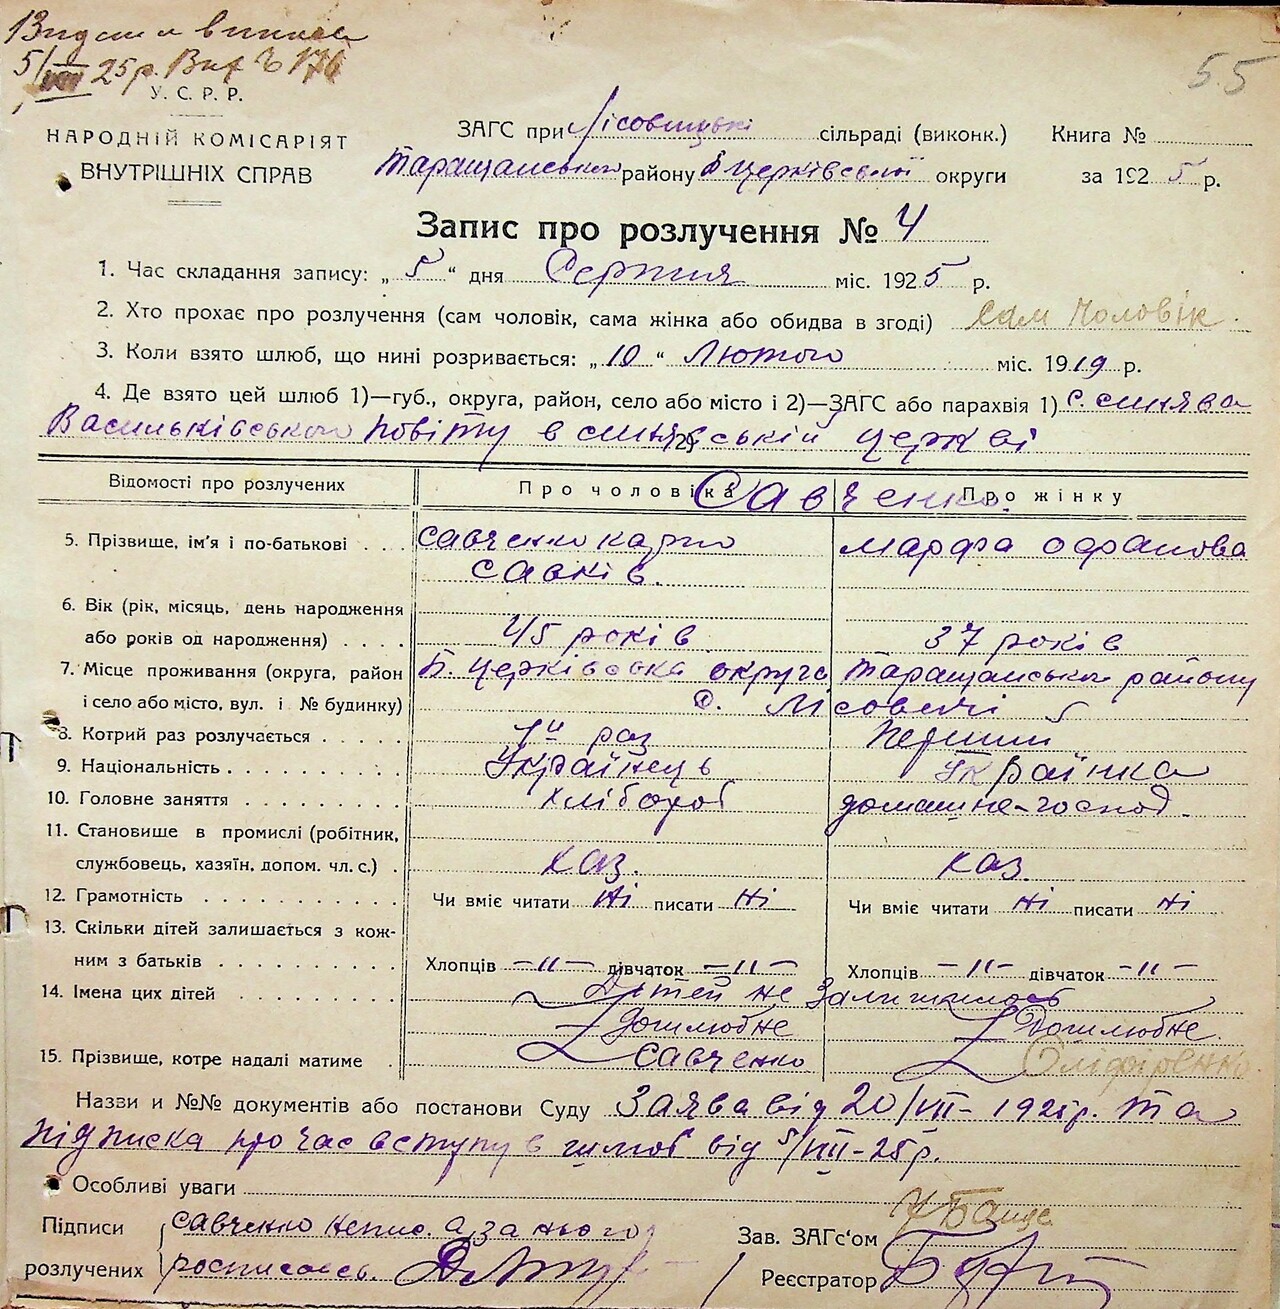 5/VIII 25р. Вих
55
У. С. Р. Р.
НАРОДНІЙ КОМІСАРІЯТ
ВНУТРІШНІХ СПРАВ
ЗАГС при Лісовицькі сільраді (виконк.) Книга №
Таращанського району Б церківської округи за 1925 р.
Запис про розлучення № 4
1. Час складання запису: „ 5 “ дня Серпня міс. 1925 р.
2. Хто прохає про розлучення (сам чоловік, сама жінка або обидва в згоді) Сам Чоловік.
3. Коли взято шлюб, що нині розривається: „ 10 “ Лютого міс. 1919 р.
4. Де взято цей шлюб 1)—губ., округа, район, село або місто і 2)—ЗАГС або парахвія 1) с. синява
Васильківського повіту в синявській церкві
2)
Відомості про розлучених Про чоловіка Про жінку
Савченко.
5. Прізвище, ім'я і по-батькові . . . савченко карпо Марфа
савків.
6. Вік (рік, місяць, день народження
або років од народження) . . . . 45 років 37 років
7. Місце проживання (округа, район Б. церківська округа Таращанського району
і село або місто, вул. і № будинку) с. Лісовичі
8. Котрий раз розлучається . . . . . 1й раз Перший
9. Національність . . . . . . . . . . . Українець Українка
10. Головне заняття . . . . . . . . . хлібороб домашне-господ.
11. Становище в промислі (робітник,
службовець, хазяїн, допом. чл. с.) . хаз. хаз.
12. Грамотність . . . . . . . . . . . Чи вміє читати Ні писати Ні Чи вміє читати Ні писати Ні
13. Скільки дітей залишається з кож-
ним з батьків . . . . . . . . . . Хлопців —„— дівчаток —„— Хлопців —„— дівчаток —„—
14. Імена цих дітей . . . . . . . . . Дітей не Залишилось
Дошлюбне Дошлюбне.
15. Прізвище, котре надалі матиме . савченко Оліфіренко
Назви и №№ документів або постанови Суду Заява від 20/VII-1925р. та
підписка про час вступу в шлюб від 5/VIII-25р.
Особливі уваги
Підписи савченко непис. а за нього
розлучених росписавсь.
Зав. ЗАГс‘ом
Реєстратор